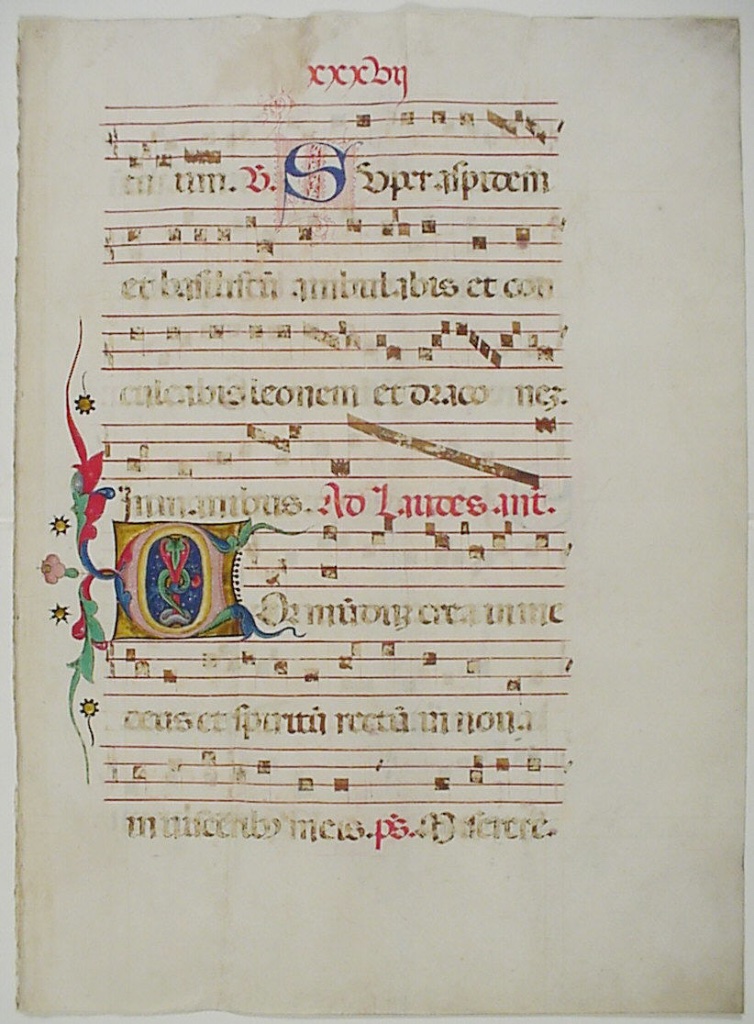 xxxvij
tuum. V. Super aspidem
et basiliscū ambulabis et con
culcabis leonem et draco nez.
In manibus. Ad Laudes. ant.
COr mūduz crea in me
deus et spiritū rectū in noua
in uisceribꝫ meis. ps. Miserere.